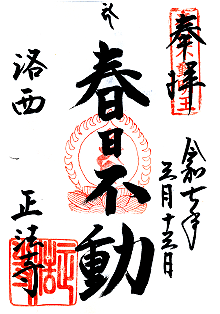 奉拝
令和七年
三月十三日
春日不動
洛西
正法寺